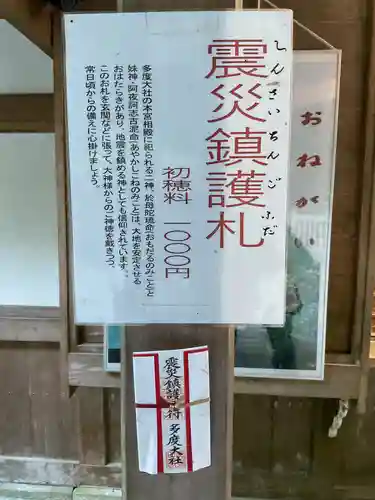 震災鎮護札
しんさいちんごふだ
初穂料 一〇〇〇円
多度大社の本宮相殿に祀られる二神、於母陀琉命(おもだるのみこと)と
妹神・阿夜訶志古泥命(あやかしこねのみこと)は、大地を安定させる
おはたらきがあり、地震を鎮める神としても信仰されています。
このお札を玄関などに張って、大神様からのご神徳を戴きつつ、
常日頃からの備えに心掛けましょう。
おねがい
震災鎮護守符
多度大社